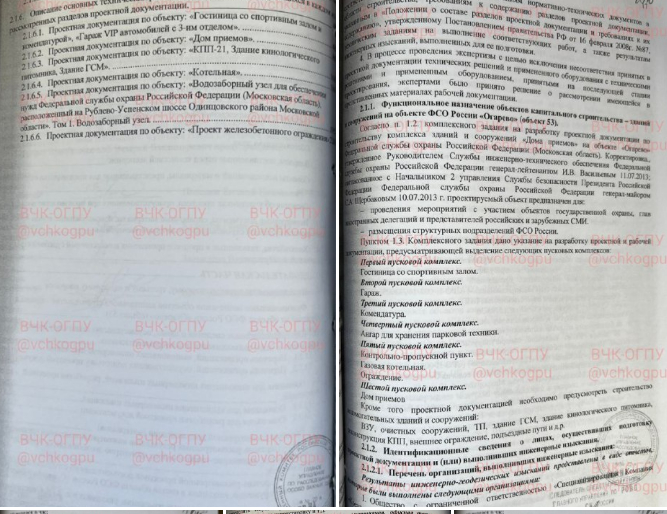 2.1.6. Описание основных
рассмотренных разделов проектной документации.
2.1.6.1. Проектная документация по объекту: «Гостиница со спортивным залом и
комендатурой», «Гараж VIP автомобилей с 3-им отделом».
2.1.6.2. Проектная документация по объекту: «Дом приемов»
2.1.6.3. Проектная документация по объекту: «КПП-21, Здание кинологического
питомника, Здание ГСМ».
2.1.6.4. Проектная документация по объекту: «Котельная».
2.1.6.5. Проектная документация по объекту: «Водозаборный узел для обеспечения
нужд Федеральной службы охраны Российской Федерации (Московская область),
расположенный на Рублево-Успенском шоссе Одинцовского района Московской
области». Том 1. Водозаборный узел.
2.1.6.6. Проектная документация по объекту: «Проект железобетонного ограждения
ВЧК-ОГПУ
@vchkogpu
ВЧК-ОГПУ
@vchkogpu
ВЧК-ОГПУ
@vchkogpu
ВЧК-ОГПУ
@vchkogpu
нормативно-технических документов в
строительстве, требованиям к содержанию разделов проектной документации,
«Положении о составе разделов проектной документации и требованиях к
утвержденному Постановлением правительства РФ от 16 февраля 2008г. №87,
заданиям на выполнение соответствующих работ, а также результатам
изысканий, выполненных для ее подготовки.
4. В процессе проведения экспертизы с целью исключения несоответствия принятых в
документации технических решений и примененного оборудования с техническими
и примененным оборудованием, принятыми на последующей стадии
проектирования, экспертами было принято решение о рассмотрении имеющейся в
материалах рабочей документации.
2.1.1. Функциональное назначение объектов капитального строительства – зданий
сооружений на объекте ФСО России «Огарево» (объект 53).
Согласно п. 1.2. комплексного задания на разработку проектной документации по
строительству комплекса зданий и сооружений «Дома приемов» на объекте «Огарево»
Федеральной службы охраны Российской Федерации (Московская область). Корректировка,
утвержденное Руководителем Службы инженерно-технического обеспечения Федеральной
службы охраны Российской Федерации генерал-лейтенантом И.В. Васильевым 11.07.2013,
согласованное с Начальником 2 управления Службы безопасности Президента Российской
Федерации Федеральной службы охраны Российской Федерации генерал-майором
С.А. Щербаковым 10.07.2013 г. проектируемый объект предназначен для:
– проведения мероприятий с участием объектов государственной охраны, глав
иностранных делегаций и представителей российских и зарубежных СМИ.
– размещения структурных подразделений ФСО России.
Пунктом 1.3. Комплексного задания дано указание на разработку проектной и рабочей
документации, предусматривающей выделение следующих пусковых комплексов:
Первый пусковой комплекс.
Гостиница со спортивным залом.
Второй пусковой комплекс.
Гараж.
Третий пусковой комплекс.
Комендатура.
Четвертый пусковой комплекс.
Ангар для хранения парковой техники.
Пятый пусковой комплекс.
Контрольно-пропускной пункт.
Газовая котельная.
Ограждение.
Шестой пусковой комплекс.
Дом приемов
Кроме того проектной документацией необходимо предусмотреть строительство
вспомогательных зданий и сооружений:
ВЗУ, очистных сооружений, ТП, здание ГСМ, здание кинологического питомника,
реконструкция КПП, внешнее ограждение, подъездные пути и др.
2.1.2. Идентификационные сведения о лицах, осуществивших подготовку
проектной документации и (или) выполнивших инженерные изыскания.
2.1.2.1. Перечень организаций, выполнивших инженерные изыскания:
Результаты инженерно-геодезических изысканий представлены в виде отчетов,
которые были выполнены следующими организациями:
1. Общество с ограниченной ответственностью «Специализированная Компания
ВЧК-ОГПУ
@vchkogpu
ВЧК-ОГПУ
@vchkogpu
ВЧК-ОГПУ
@vchkogpu
ВЧК-ОГПУ
@vchkogpu